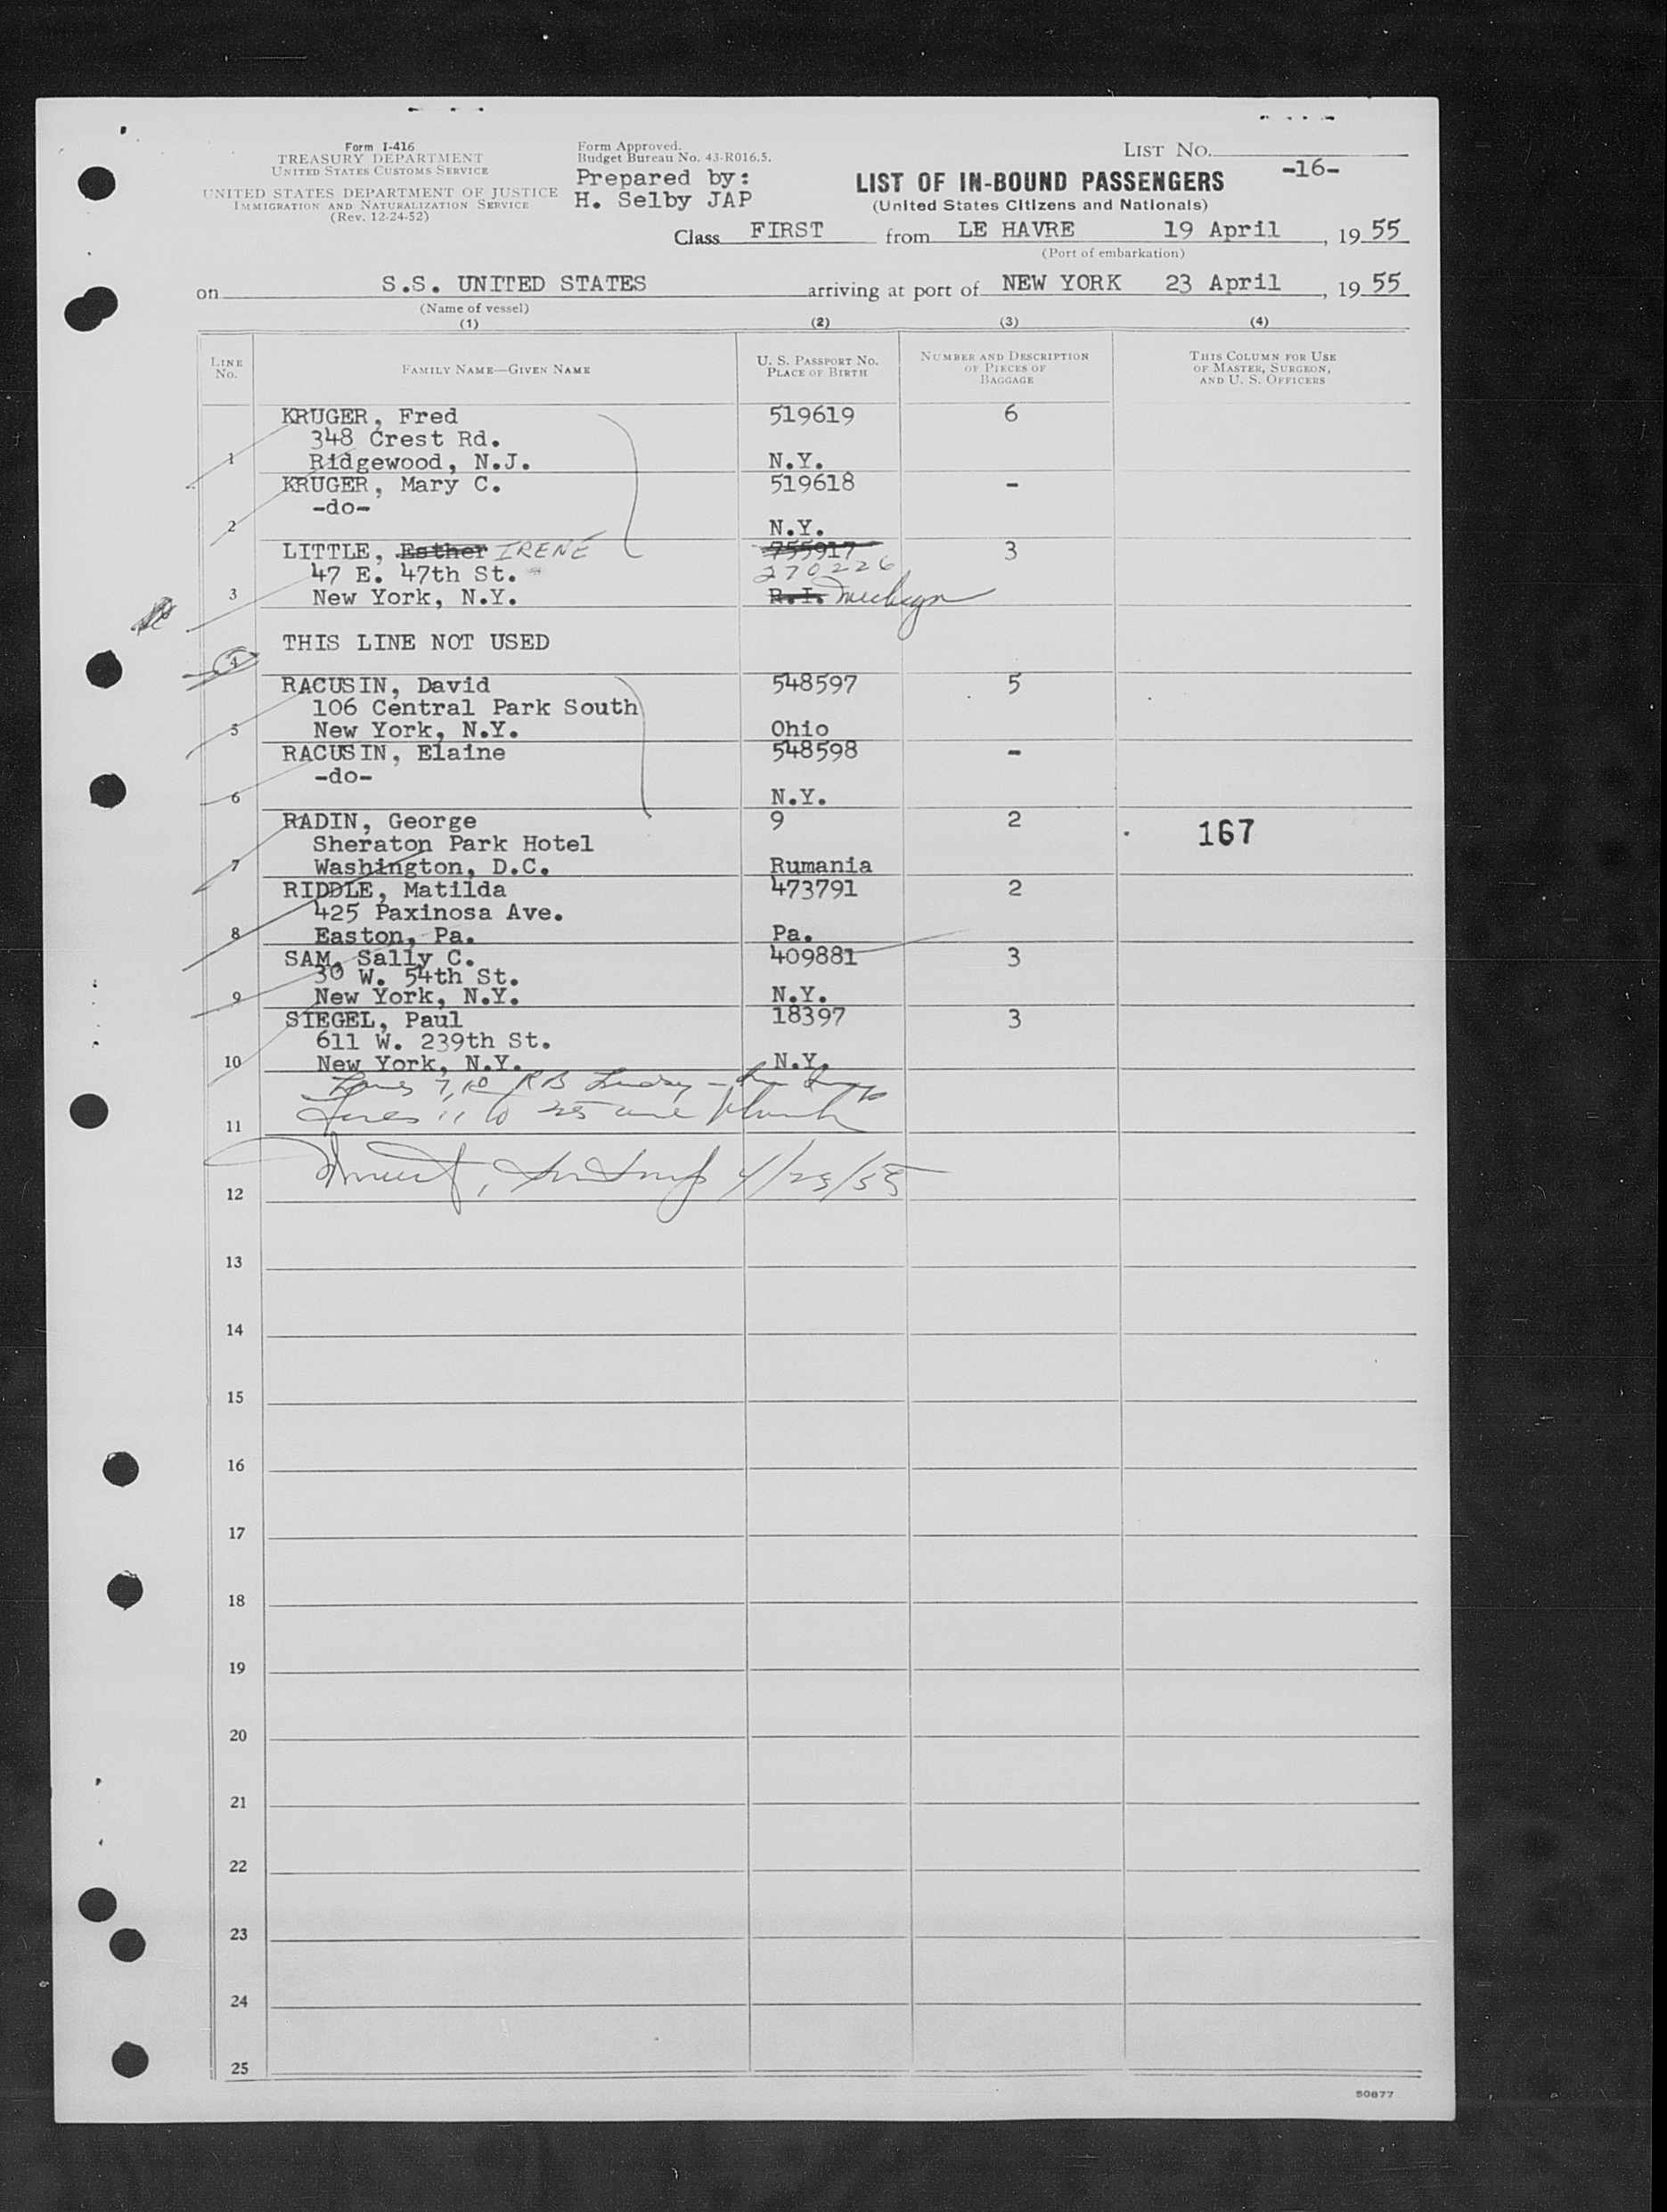 Form I-416
TREASURY DEPARTMENT
UNITED STATES CUSTOMS SERVICE
UNITED STATES DEPARTMENT OF JUSTICE
IMMIGRATION AND NATURALIZATION SERVICE
(Rev. 12-24-52)
Form Approved.
Budget Bureau No. 43-R016.5.
Prepared by:
H. Selby JAP
LIST NO.
-16-
LIST OF IN-BOUND PASSENGERS
(United States Citizens and Nationals)
Class FIRST from LE HAVRE 19 April, 1955
(Port of embarkation)
on S.S. UNITED STATES arriving at port of NEW YORK 23 April, 1955
(Name of vessel)
(1) (2) (3) (4)
LINE NO. FAMILY NAME—GIVEN NAME U. S. PASSPORT NO. PLACE OF BIRTH NUMBER AND DESCRIPTION OF PIECES OF BAGGAGE THIS COLUMN FOR USE OF MASTER, SURGEON, AND U. S. OFFICERS
KRUGER, Fred 519619 6
348 Crest Rd.
1 Ridgewood, N.J. N.Y.
KRUGER, Mary C. 519618 -
-do-
2 N.Y.
LITTLE, Esther IRENE 755917 3
47 E. 47th St. 270226
3 New York, N.Y. R.I. Michigan
THIS LINE NOT USED
4
RACUSIN, David 548597 5
106 Central Park South
5 New York, N.Y. Ohio
RACUSIN, Elaine 548598 -
-do-
6 N.Y.
RADIN, George 9 2 167
Sheraton Park Hotel
7 Washington, D.C. Rumania
RIDDLE, Matilda 473791 2
425 Paxinosa Ave.
8 Easton, Pa. Pa.
SAM, Sally C. 409881 3
30 W. 54th St.
9 New York, N.Y. N.Y.
SIEGEL, Paul 18397 3
611 W. 239th St.
10 New York, N.Y. N.Y.
Lines 7, 10 RB
Lines 11 to 25 are blank
11
4/23/55
12
13
14
15
16
17
18
19
20
21
22
23
24
25
50877